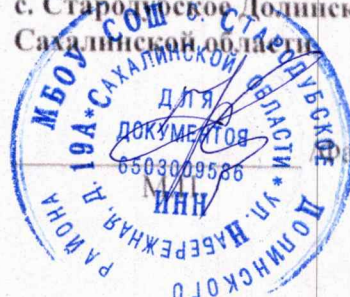 с. Стародубское Долинск
Сахалинской области
МБОУ СОШ с. СТАРОДУБСКОЕ ДОЛИНСКОГО РАЙОНА
*САХАЛИНСКОЙ ОБЛАСТИ * УЛ. НАБЕРЕЖНАЯ, Д. 19А
ДЛЯ
ДОКУМЕНТОВ
6503009586
М.П.
ИНН